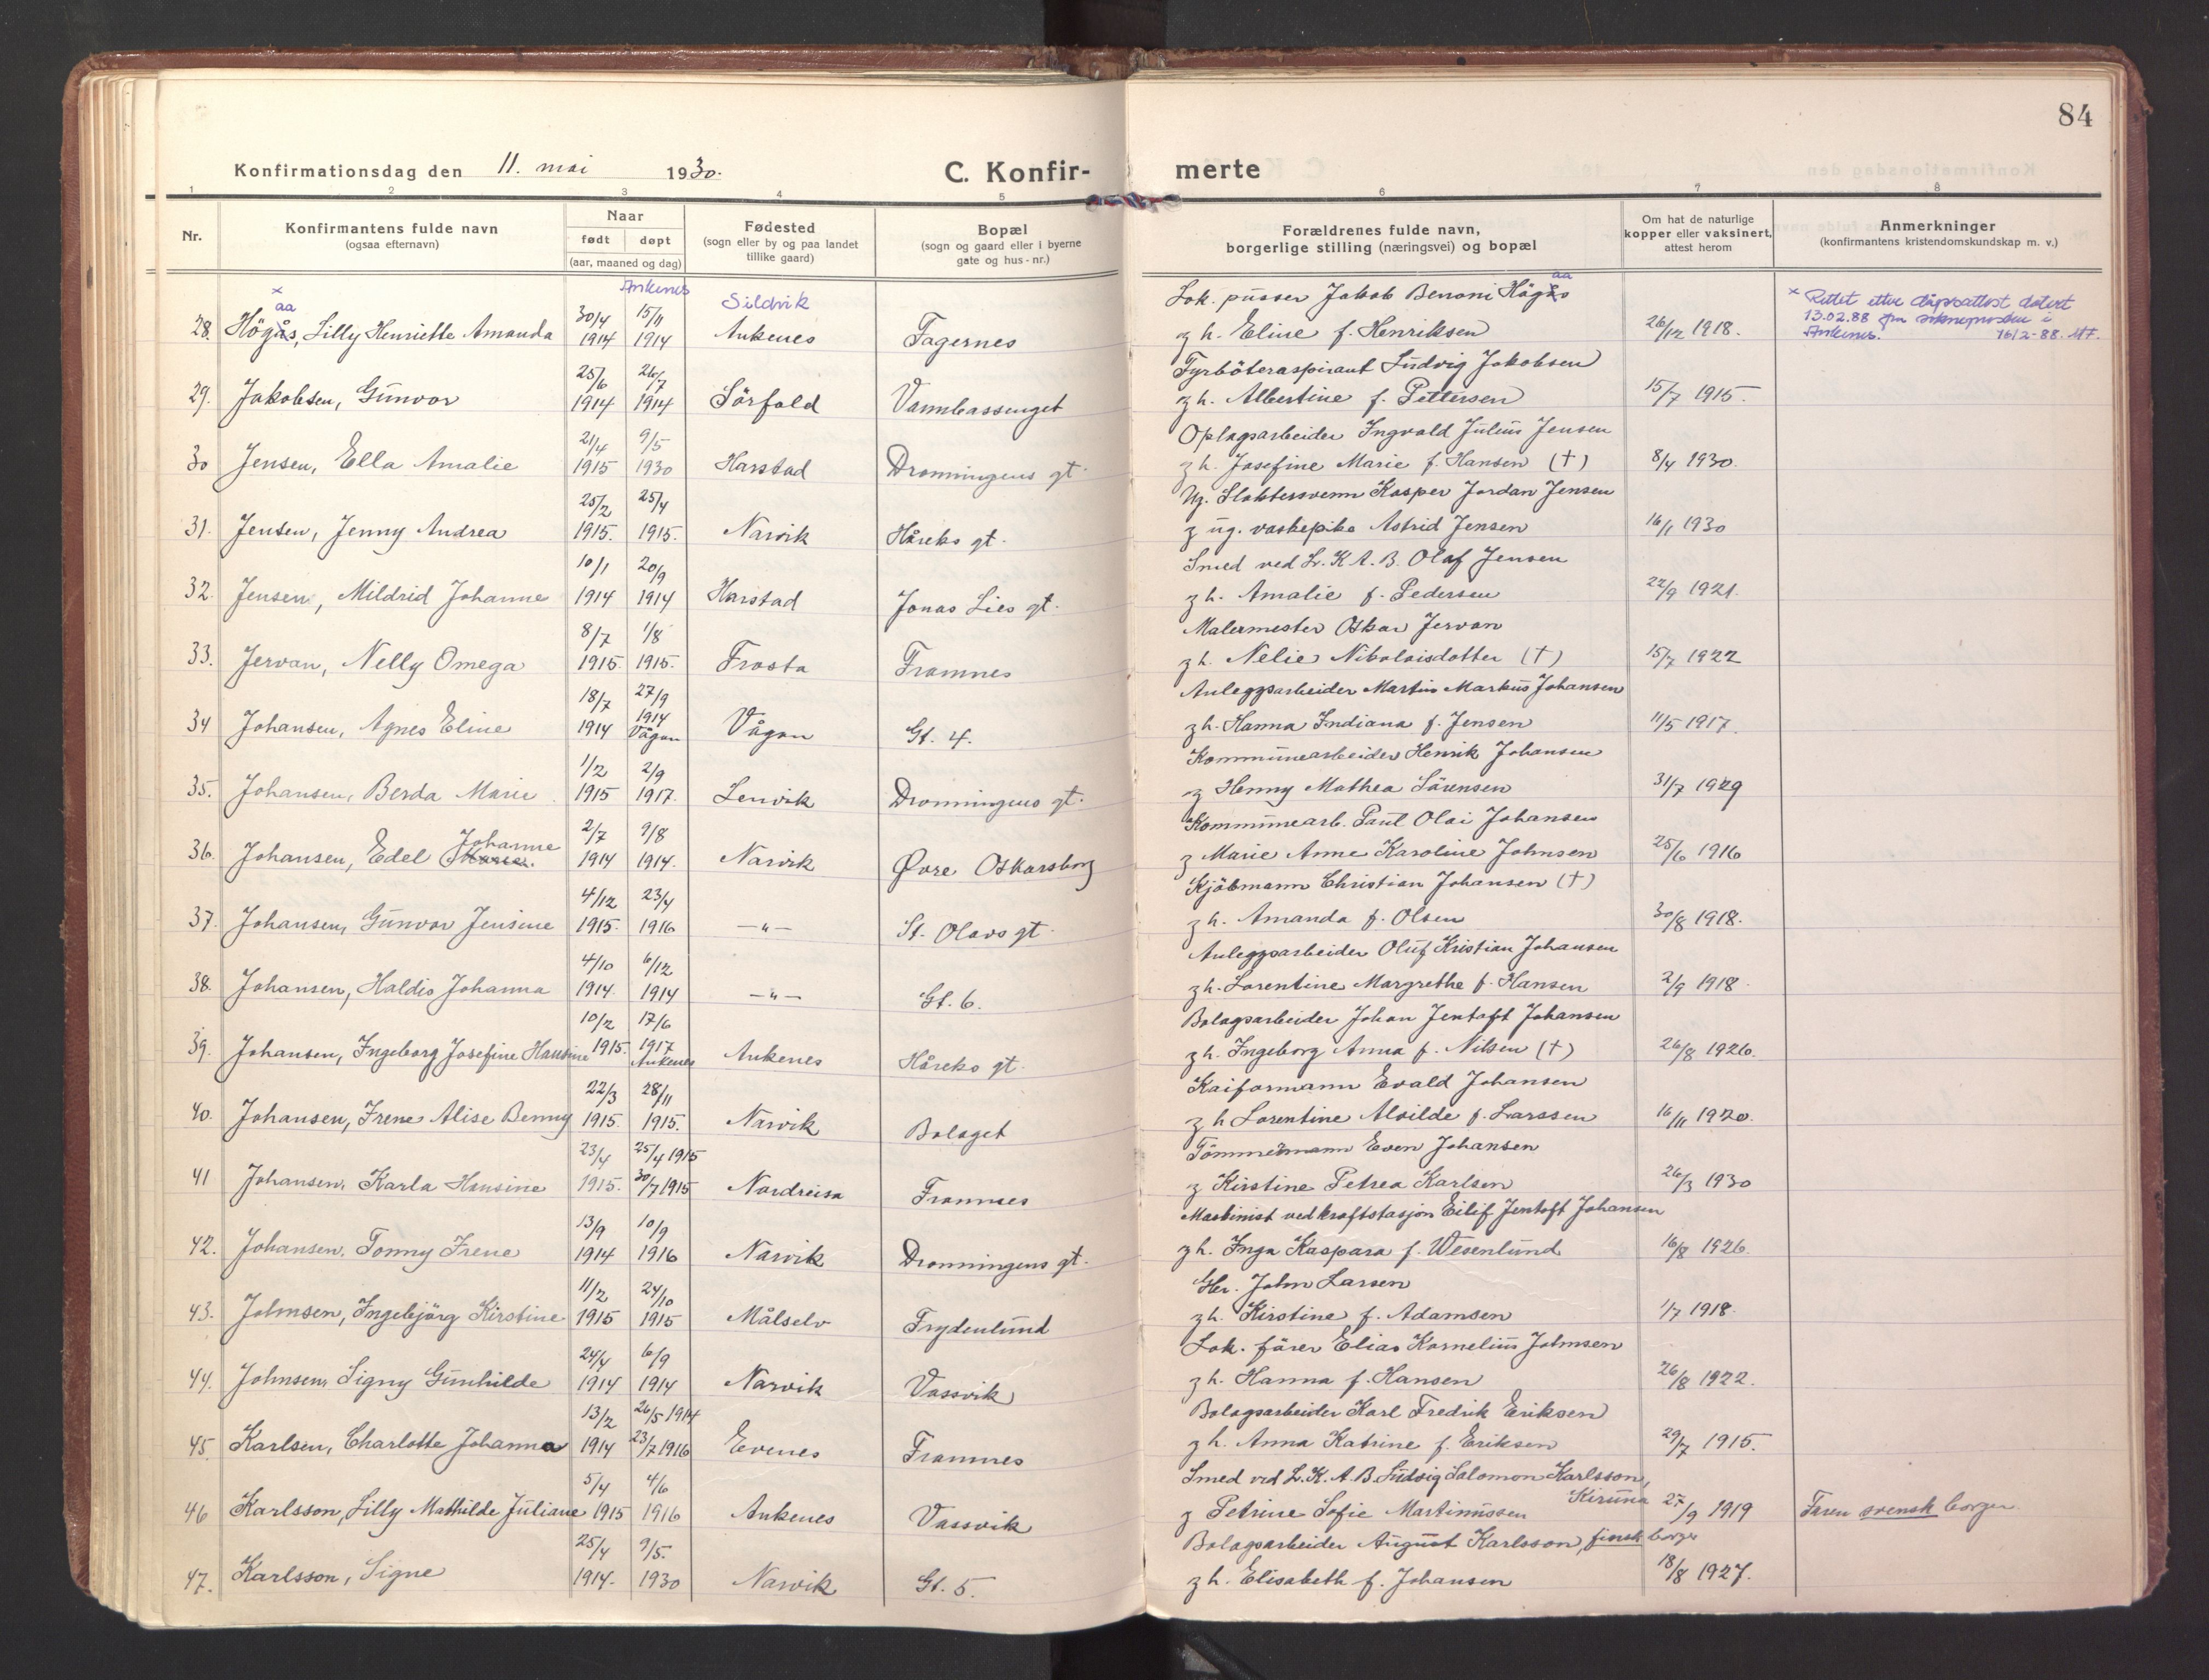 84
Konfirmationsdag den 11. mai 1930.
C. Konfir-
merte
1 2 3 4 5 6 7 8
Nr.
Konfirmantens fulde navn
(ogsaa efternavn)
Naar
født døpt
(aar, maaned og dag)
Fødested
(sogn eller by og paa landet
tillike gaard)
Bopæl
(sogn og gaard eller i byerne
gate og hus-nr.)
Forældrenes fulde navn,
borgerlige stilling (næringsvei) og bopæl
Om hat de naturlige
kopper eller vaksinert,
attest herom
Anmerkninger
(konfirmantens kristendomskundskap m. v.)
x aa Ankenes Sildvik aa
30/4 15/11 Lok. pusser Jakob Benoni Högås
28. Högås, Lilly Henriette Amanda 1914 1914 Ankenes Fagernes g h. Eline f. Henriksen 26/12 1918.
x Rettet etter dåpsattest datert
13.02.88 fra sokneprosten i
Ankenes. 16/2-88.
25/6 26/7 Fyrböteraspirant Ludvig Jakobsen
29. Jakobsen, Gunvor 1914 1914 Sörfold Vannbassenget g h. Albertine f. Pettersen 15/7 1915.
21/4 9/5 Oplagsarbeider Ingvald Julius Jensen
30 Jensen, Ella Amalie 1915 1930 Harstad Dronningens gt. g h. Josefine Marie f. Hansen (†) 8/4 1930.
25/2 25/4 Ug. Slaktersvenn Kasper Jordan Jensen
31. Jensen, Jenny Andrea 1915. 1915. Narvik Håreks gt. g ug. vaskepike Astrid Jensen 16/1 1930
10/1 20/9 Smed ved L.K.A.B. Olaf Jensen
32. Jensen, Mildrid Johanne 1914 1914 Harstad Jonas Lies gt. g h. Amalie f. Pedersen 22/9 1921.
8/7 1/8 Malermester Oskar Jervan
33. Jervan, Nelly Omega 1915. 1915. Frosta Framnes g h. Nelie Nikolaisdotter (†) 15/7 1922
18/7 27/9 Anleggsarbeider Martin Markus Johansen
34 Johansen, Agnes Eline 1914 1914 Vågan Vågan Gt. 4. g h. Hanna Indiana f. Jensen 11/5 1917.
1/2 2/9 Kommunearbeider Henrik Johansen
35. Johansen, Berda Marie 1915 1917. Lenvik Dronningens gt. g Henny Mathea Sörensen 31/7 1929
2/7 9/8 Kommunearb. Paul Olai Johansen
36. Johansen, Edel Johanne 1914 1914. Narvik Øvre Oskarsborg g Marie Anne Karoline Johnsen 25/6 1916
4/12 23/4 Kjöbmann Christian Johansen (†)
37. Johansen, Gunvor Jensine 1915. 1916 —"— St. Olavs gt. g h. Amanda f. Olsen 30/8 1918.
4/10 6/12 Anleggsarbeider Oluf Kristian Johansen
38. Johansen, Haldis Johanna 1914. 1914 —"— Gt. 6. g h. Lorentine Margrethe f. Hansen 2/9 1918.
10/2 17/6 Bolagsarbeider Johan Jentoft Johansen
39. Johansen, Ingeborg Josefine Hansine 1915. 1917 Ankenes Ankenes Håreks gt. g h. Ingeborg Anna f. Nilsen (†) 26/8 1926.
22/3 28/11 Kaiformann Evald Johansen
40. Johansen, Irene Alise Benny 1915. 1915. Narvik Bolaget g h Lorentine Alvilde f. Larssen 16/11 1920.
23/4 25/4 1915 Tömmermann Even Johansen
41 Johansen, Karla Hansine 1915. 30/7 1915 Nordreisa Framnes g Kirstine Petrea Karlsen 26/3 1930
13/9 10/9 Maskinist ved kraftstasjon Eilif Jentoft Johansen
42. Johansen, Tonny Irene 1914 1916 Narvik Dronningens gt. g h. Inga Kaspara f. Wesenlund 16/8 1926.
11/2 24/10 John Larsen
43. Johnsen, Ingebjörg Kirstine 1915 1915 Målselv Frydenlund g h. Kirstine f. Adamsen 1/7 1918.
24/4 6/9 Lok. förer Elias Kornelius Johnsen
44. Johnsen, Signy Gunhilde 1914 1914 Narvik Vassvik g h. Hanna f. Hansen 26/8 1922.
13/2 26/5 1914 Bolagsarbeider Karl Fredrik Eriksen
45. Karlsen, Charlotte Johanna 1914 23/7 1916 Evenes Framnes g h. Anna Katrine f. Eriksen 29/7 1915.
5/4 4/6 Smed ved L.K.A.B. Ludvig Salomon Karlsson, Kiruna
46 Karlsson, Lilly Mathilde Juliane 1915 1916 Ankenes Vassvik g Petrine Sofie Martinussen 25/9 1919 Faren svensk borger
25/4 9/5. Bolagsarbeider August Karlsson, finsk borger
47. Karlsson, Signe 1914. 1930 Narvik Gt. 5. g h. Elisabeth f. Johansen 18/8 1927.